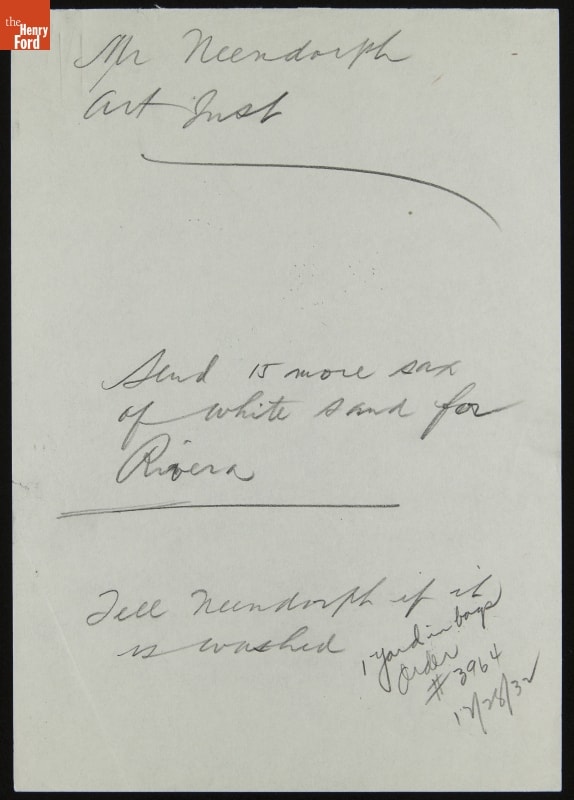 the
Henry
Ford
Mr Neendorph
Art Inst
Send 15 more sax
of white sand for
Rivera
Tell Neendorph if it
is washed
1 yard in bags
Order
# 3964
12/28/32